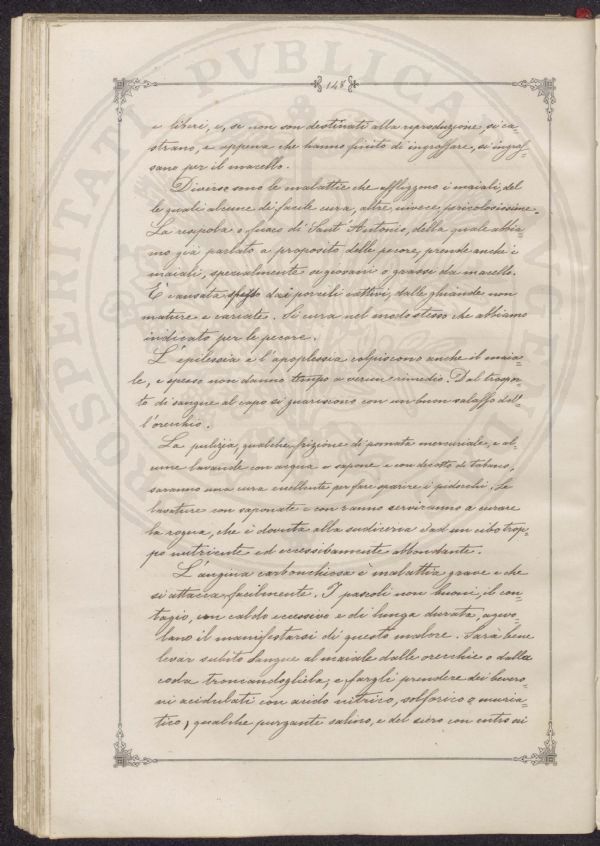 148
e liberi, e, se non son destinati alla reproduzione, si ca-
strano, e appena che hanno finito di ingrossare, si ingras-
sano per il macello.
Diverse sono le malattie che affliggono i maiali, del
le quali alcune di facile cura, altre, invece, pericolosissime.
La resipola o fuoco di Sant'Antonio, della quale abbia-
mo già parlato a proposito delle pecore, prende anche i
maiali, specialmente se giovani o grassi da macello.
È causata spesso dai porcili cattivi, dalle ghiande non
mature e cariate. Si cura nel modo stesso che abbiamo
indicato per le pecore.
L'epilessia e l'apoplessia colpiscono anche il maia-
le, e spesso non danno tempo a verun rimedio. Dal traspor-
to di sangue al capo si guariscono con un buon salasso del-
l'orecchio.
La pulizia, qualche frizione di pomata mercuriale, e al-
cune lavande con acqua e sapone e con decotto di tabacco,
saranno una cura eccellente per fare sparire i pidocchi. Le
lavature con saponate e con ranno serviranno a curare
la rogna, che è dovuta alla sudiceria e ad un cibo trop-
po nutriente ed eccessivamente abbondante.
L'angina carbonchiosa è malattia grave e che
si attacca facilmente. I pascoli non buoni, il con-
tagio, un caldo eccessivo e di lunga durata, agevo-
lano il manifestarsi di questo malore. Sarà bene
levar subito sangue al maiale dalle orecchie o dalla
coda troncandogliela, e fargli prendere dei bevero-
ni acidulati con acido nitrico, solforico o muria-
tico, qualche purgante salino, e del siero con entro vi
PROSPERITATI PVBLICAE AVGENDAE